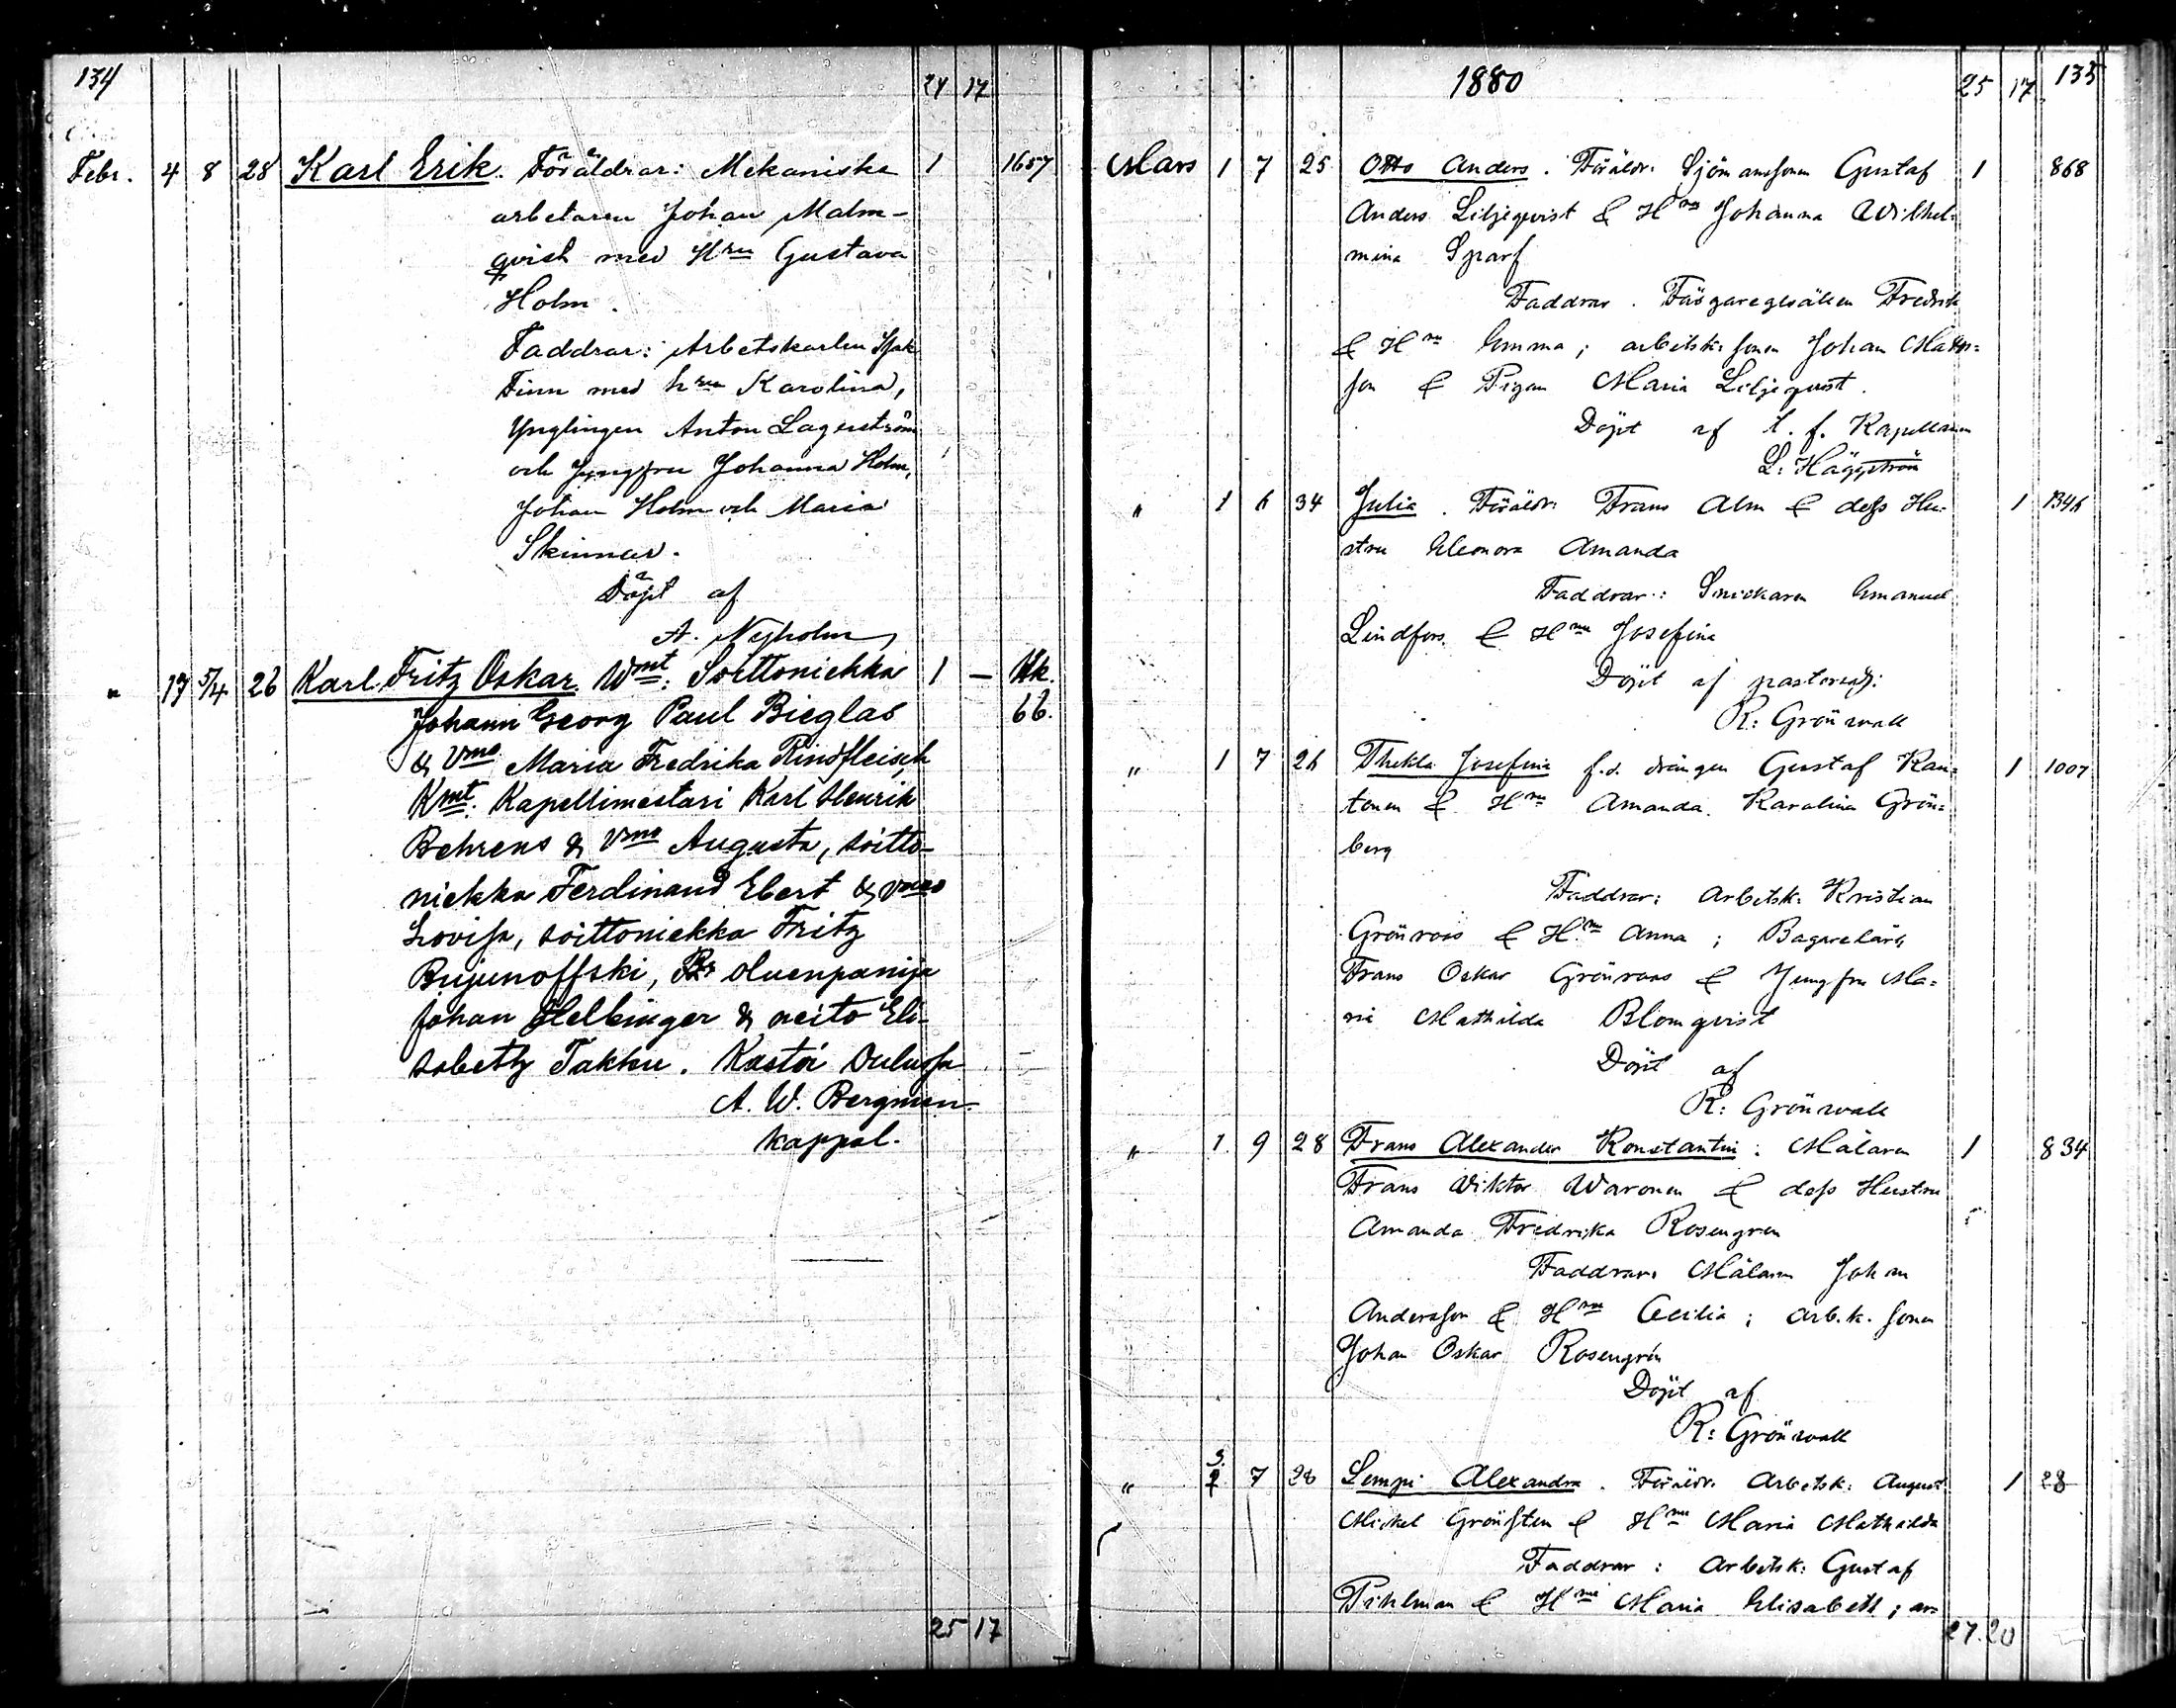 134 24 17
Febr. 4 8 28 Karl Erik. Föräldrar: Mekaniske 1 1657
arbetaren Johan Malm-
qvist med Hru Gustava
Holm.
Faddrar: Arbetskarlen Isak
Finn med hru Karolina,
Ynglingen Anton Lagerström
och Jungfru Johanna Holm,
Johan Holm och Maria
Skinnar.
Döpt af
A. Nyholm
" 17 5/4 26 Karl Fritz Oskar. Wmt: Soittoniekka 1 — Kk.
Johann Georg Paul Bieglas 66.
& Vmo Maria Fredrika Rindfleisch
Kmt. Kapellimestari Karl Henrik
Behrens & Vmo Augusta, soitto-
niekka Ferdinand Ebert & vmo
Lovisa, soittoniekka Fritz
Bujunoffski, oluenpanija
Johan Helbinger & neito Eli-
sabeth Takku. Kastoi Oulussa
A. W. Bergman
kappal.
25 17
1880 25 17 135
Mars 1 7 25 Otto Anders. Föräldr: Sjömanssonen Gustaf 1 868
Anders Liljeqvist & Hru Johanna Wilhel-
mina Sparf
Faddrar. Färgaregesällen Fredrik
& Hru Emma; arbetsk: sonen Johan
son & Pigan Maria Liljeqvist.
Döpt af t. f. Kapellanen
L. Häggström
" 1 6 34 Julia. Föräldr: Frans Alm & dess Hu- 1 1346
stru Eleonora Amanda
Faddrar: Snickaren Emanuel
Lindfors & Hru Josefina
Döpt af pastorsadj:
R: Grönwall
" 1 7 26 Thekla Josefina f.d. drängen Gustaf Kan- 1 1007
tonen & Hru Amanda Karolina Grön-
berg
Faddrar: Arbetsk: Kristian
Grönroos & Hru Anna; Bagarelärl
Frans Oskar Grönroos & Jungfru Ma-
ria Mathilda Blomqvist
Döpt af
R: Grönwall
" 1 9 28 Frans Alexander Konstantin: Målaren 1 834
Frans Viktor Waronen & dess Hustru
Amanda Fredrika Rosengren
Faddrar: Målaren Johan
Andersson & Hru Cecilia; arb.k. sonen
Johan Oskar Rosengrén
Döpt af
R: Grönwall
" 2 7 28 Lempi Alexandra. Föräldr. Arbetsk: August 1 28
Mickel Grönsten & Hru Maria Mathilda
Faddrar: Arbetsk: Gustaf
Pihlman & Hru Maria Elisabeth; ar-
27.20